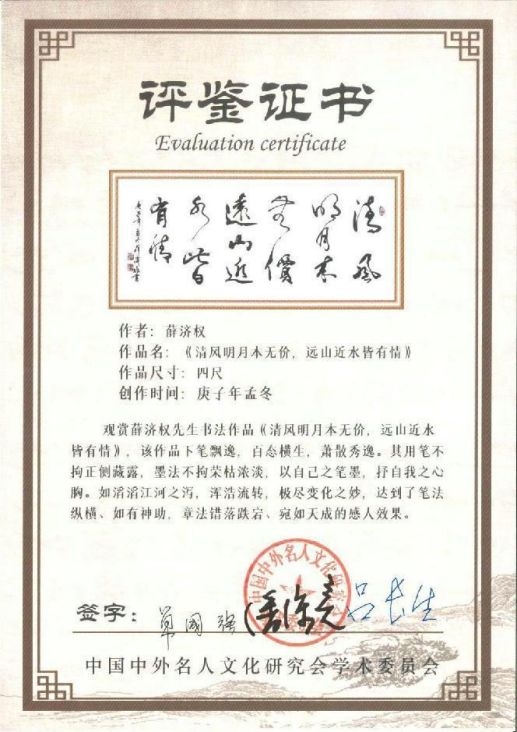 评鉴证书
Evaluation certificate
清风
明月本
无價
遠山近
水皆
有情
作者：薛济权
作品名：《清风明月本无价，远山近水皆有情》
作品尺寸：四尺
创作时间：庚子年孟冬
观赏薛济权先生书法作品《清风明月本无价，远山近水
皆有情》，该作品下笔飘逸，百态横生，萧散秀逸。其用笔不
拘正侧藏露，墨法不拘荣枯浓淡，以自己之笔墨，抒自我之心
胸。如滔滔江河之泻，浑浩流转，极尽变化之妙，达到了笔法
纵横、如有神助，章法错落跌宕、宛如天成的感人效果。
签字：
吕长生
中国中外名人文化研究会学术委员会